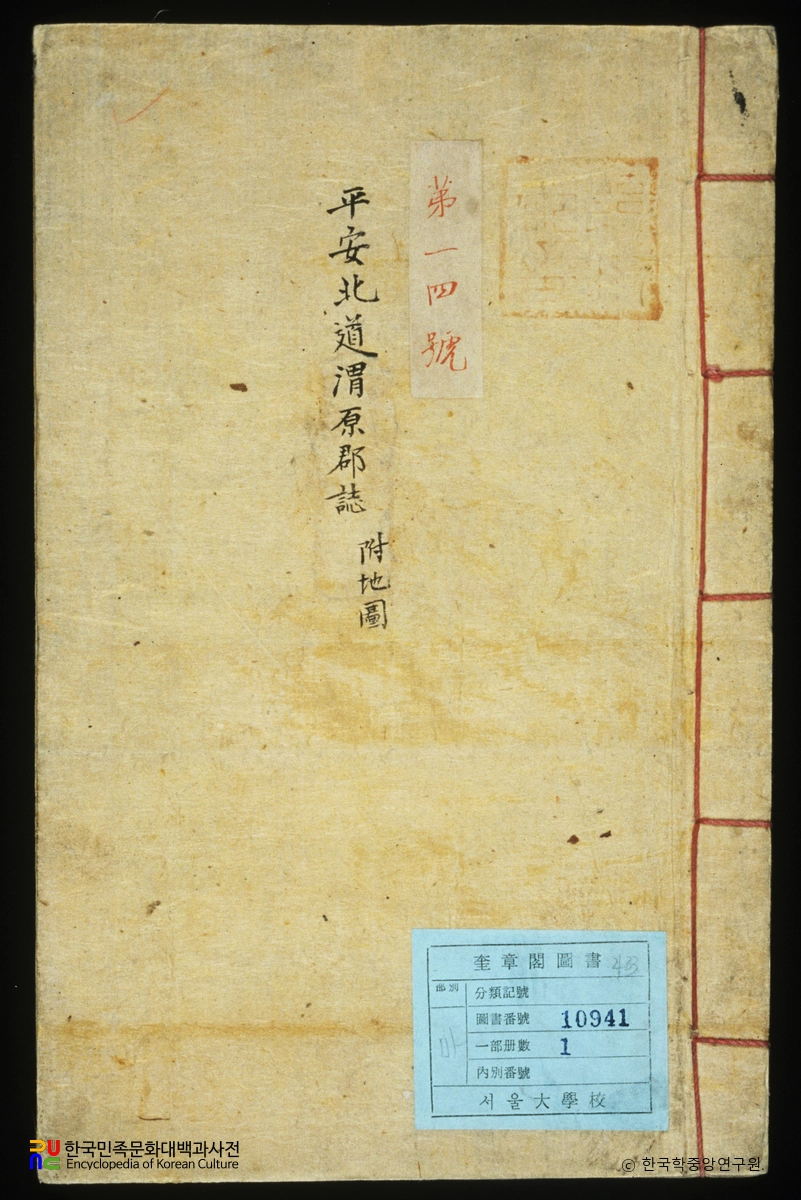 第一四號
平安北道渭原郡誌
附地圖
奎章閣圖書
部別
分類記號
圖書番號 10941
一部册數 1
內別番號
서울大學校
한국민족문화대백과사전
Encyclopedia of Korean Culture
ⓒ 한국학중앙연구원